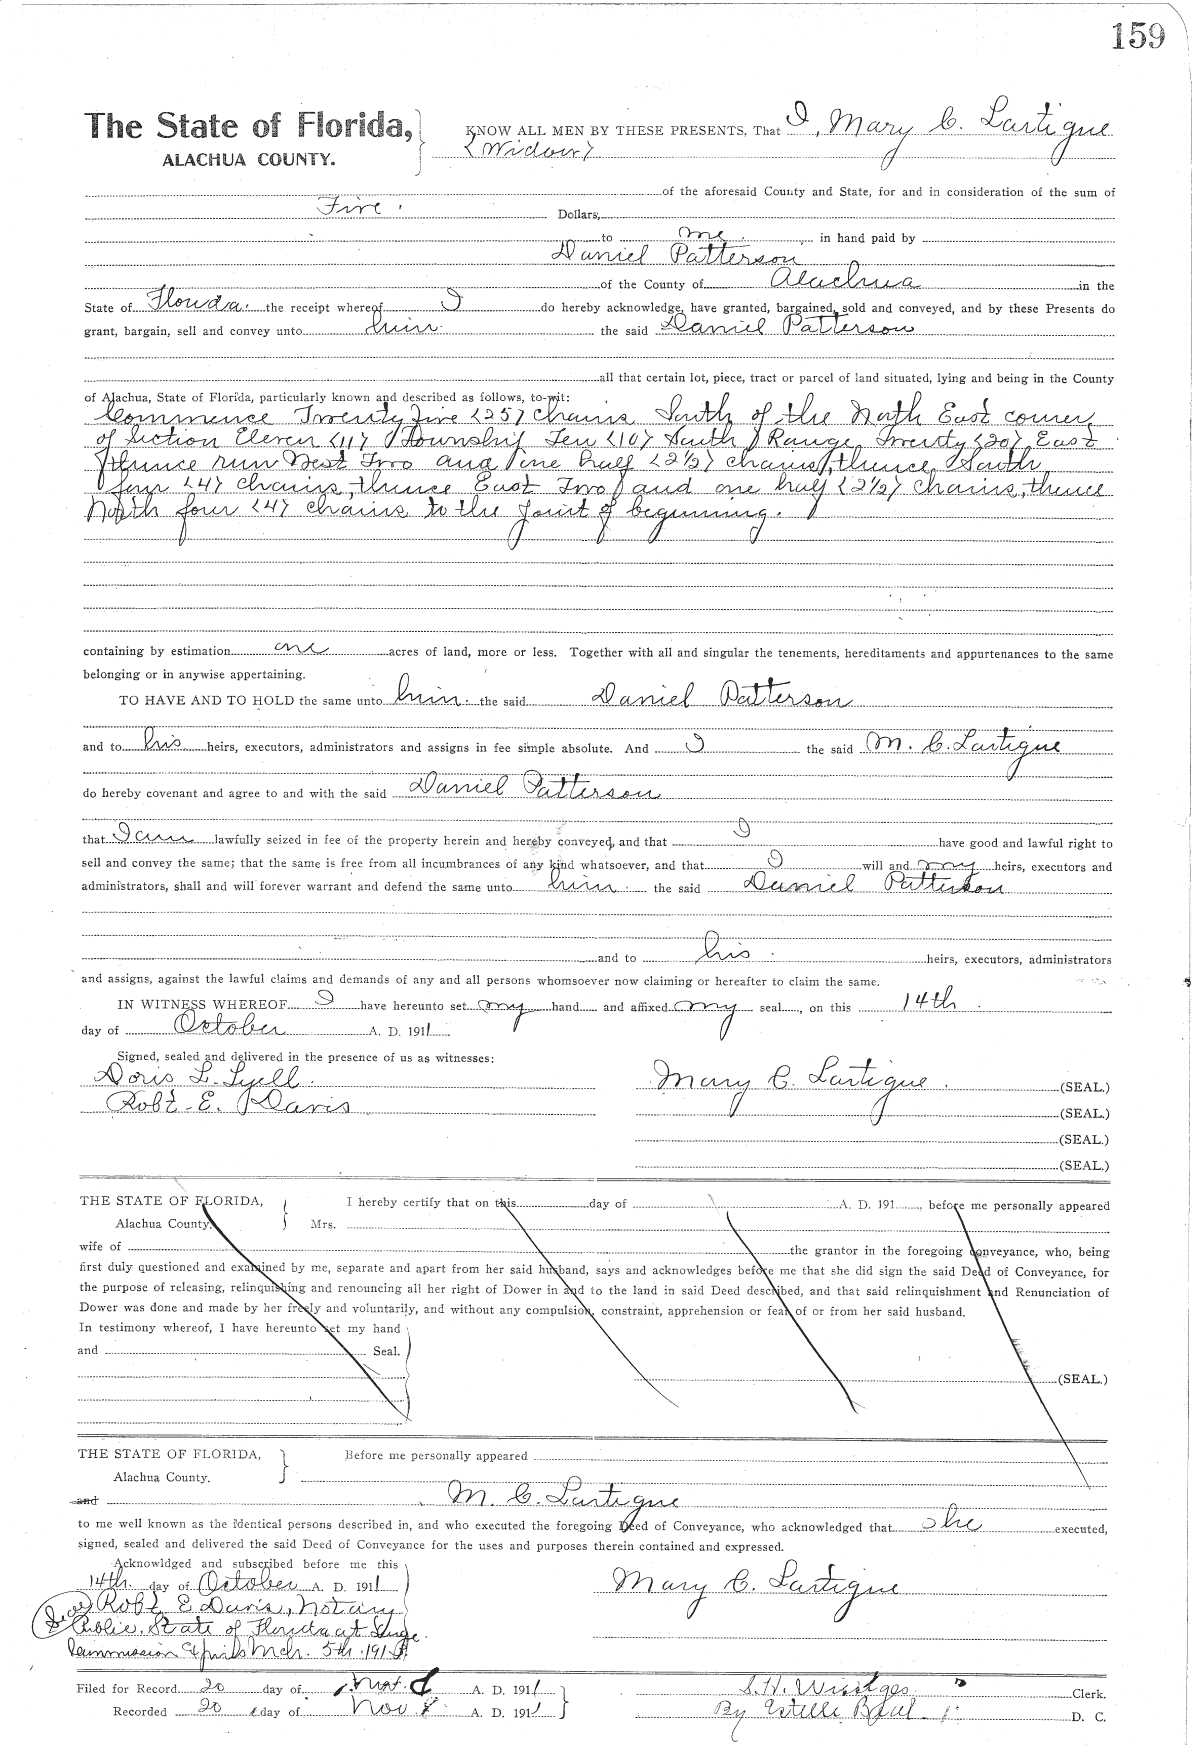 159
The State of Florida, KNOW ALL MEN BY THESE PRESENTS, That I, Mary C. Lartigue
ALACHUA COUNTY. (Widow)
of the aforesaid County and State, for and in consideration of the sum of
Five Dollars,
to me in hand paid by
Daniel Patterson
of the County of Alachua in the
State of Florida the receipt whereof I do hereby acknowledge, have granted, bargained, sold and conveyed, and by these Presents do
grant, bargain, sell and convey unto him the said Daniel Patterson
all that certain lot, piece, tract or parcel of land situated, lying and being in the County
of Alachua, State of Florida, particularly known and described as follows, to-wit:
Commence Twenty five (25) chains South of the North East corner
of Section Eleven (11) Township Ten (10) South Range Twenty (20) East
thence run West Two and one half (2½) chains, thence South
four (4) chains, thence East Two and one half (2½) chains, thence
North four (4) chains to the point of beginning.
containing by estimation one acres of land, more or less. Together with all and singular the tenements, hereditaments and appurtenances to the same
belonging or in anywise appertaining.
TO HAVE AND TO HOLD the same unto him the said Daniel Patterson
and to his heirs, executors, administrators and assigns in fee simple absolute. And I the said M. C. Lartigue
do hereby covenant and agree to and with the said Daniel Patterson
that I am lawfully seized in fee of the property herein and hereby conveyed, and that I have good and lawful right to
sell and convey the same; that the same is free from all incumbrances of any kind whatsoever, and that I will and my heirs, executors and
administrators, shall and will forever warrant and defend the same unto him the said Daniel Patterson
and to his heirs, executors, administrators
and assigns, against the lawful claims and demands of any and all persons whomsoever now claiming or hereafter to claim the same.
IN WITNESS WHEREOF I have hereunto set my hand and affixed my seal, on this 14th
day of October A. D. 1911
Signed, sealed and delivered in the presence of us as witnesses:
Doris L. Lyell Mary C. Lartigue (SEAL.)
Robt. E. Davis (SEAL.)
(SEAL.)
(SEAL.)
THE STATE OF FLORIDA, I hereby certify that on this day of A. D. 191 , before me personally appeared
Alachua County. Mrs.
wife of the grantor in the foregoing conveyance, who, being
first duly questioned and examined by me, separate and apart from her said husband, says and acknowledges before me that she did sign the said Deed of Conveyance, for
the purpose of releasing, relinquishing and renouncing all her right of Dower in and to the land in said Deed described, and that said relinquishment and Renunciation of
Dower was done and made by her freely and voluntarily, and without any compulsion, constraint, apprehension or fear of or from her said husband.
In testimony whereof, I have hereunto set my hand
and Seal.
(SEAL.)
THE STATE OF FLORIDA, Before me personally appeared
Alachua County.
and M. C. Lartigue
to me well known as the identical persons described in, and who executed the foregoing Deed of Conveyance, who acknowledged that she executed,
signed, sealed and delivered the said Deed of Conveyance for the uses and purposes therein contained and expressed.
Acknowldged and subscribed before me this
14th day of October A. D. 1911 Mary C. Lartigue
Robt E Davis, Notary
Public, State of Florida at Large
Commission Expires Mch. 5th 191
Filed for Record 20 day of A. D. 1911 Clerk.
Recorded 20 day of Nov A. D. 1911 By Estelle D. C.